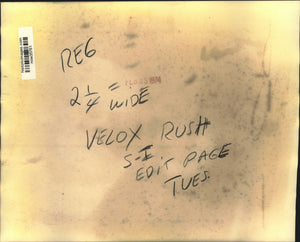 REG
2 1/4 = WIDE
VELOX RUSH
S-I
EDIT PAGE
TUES.